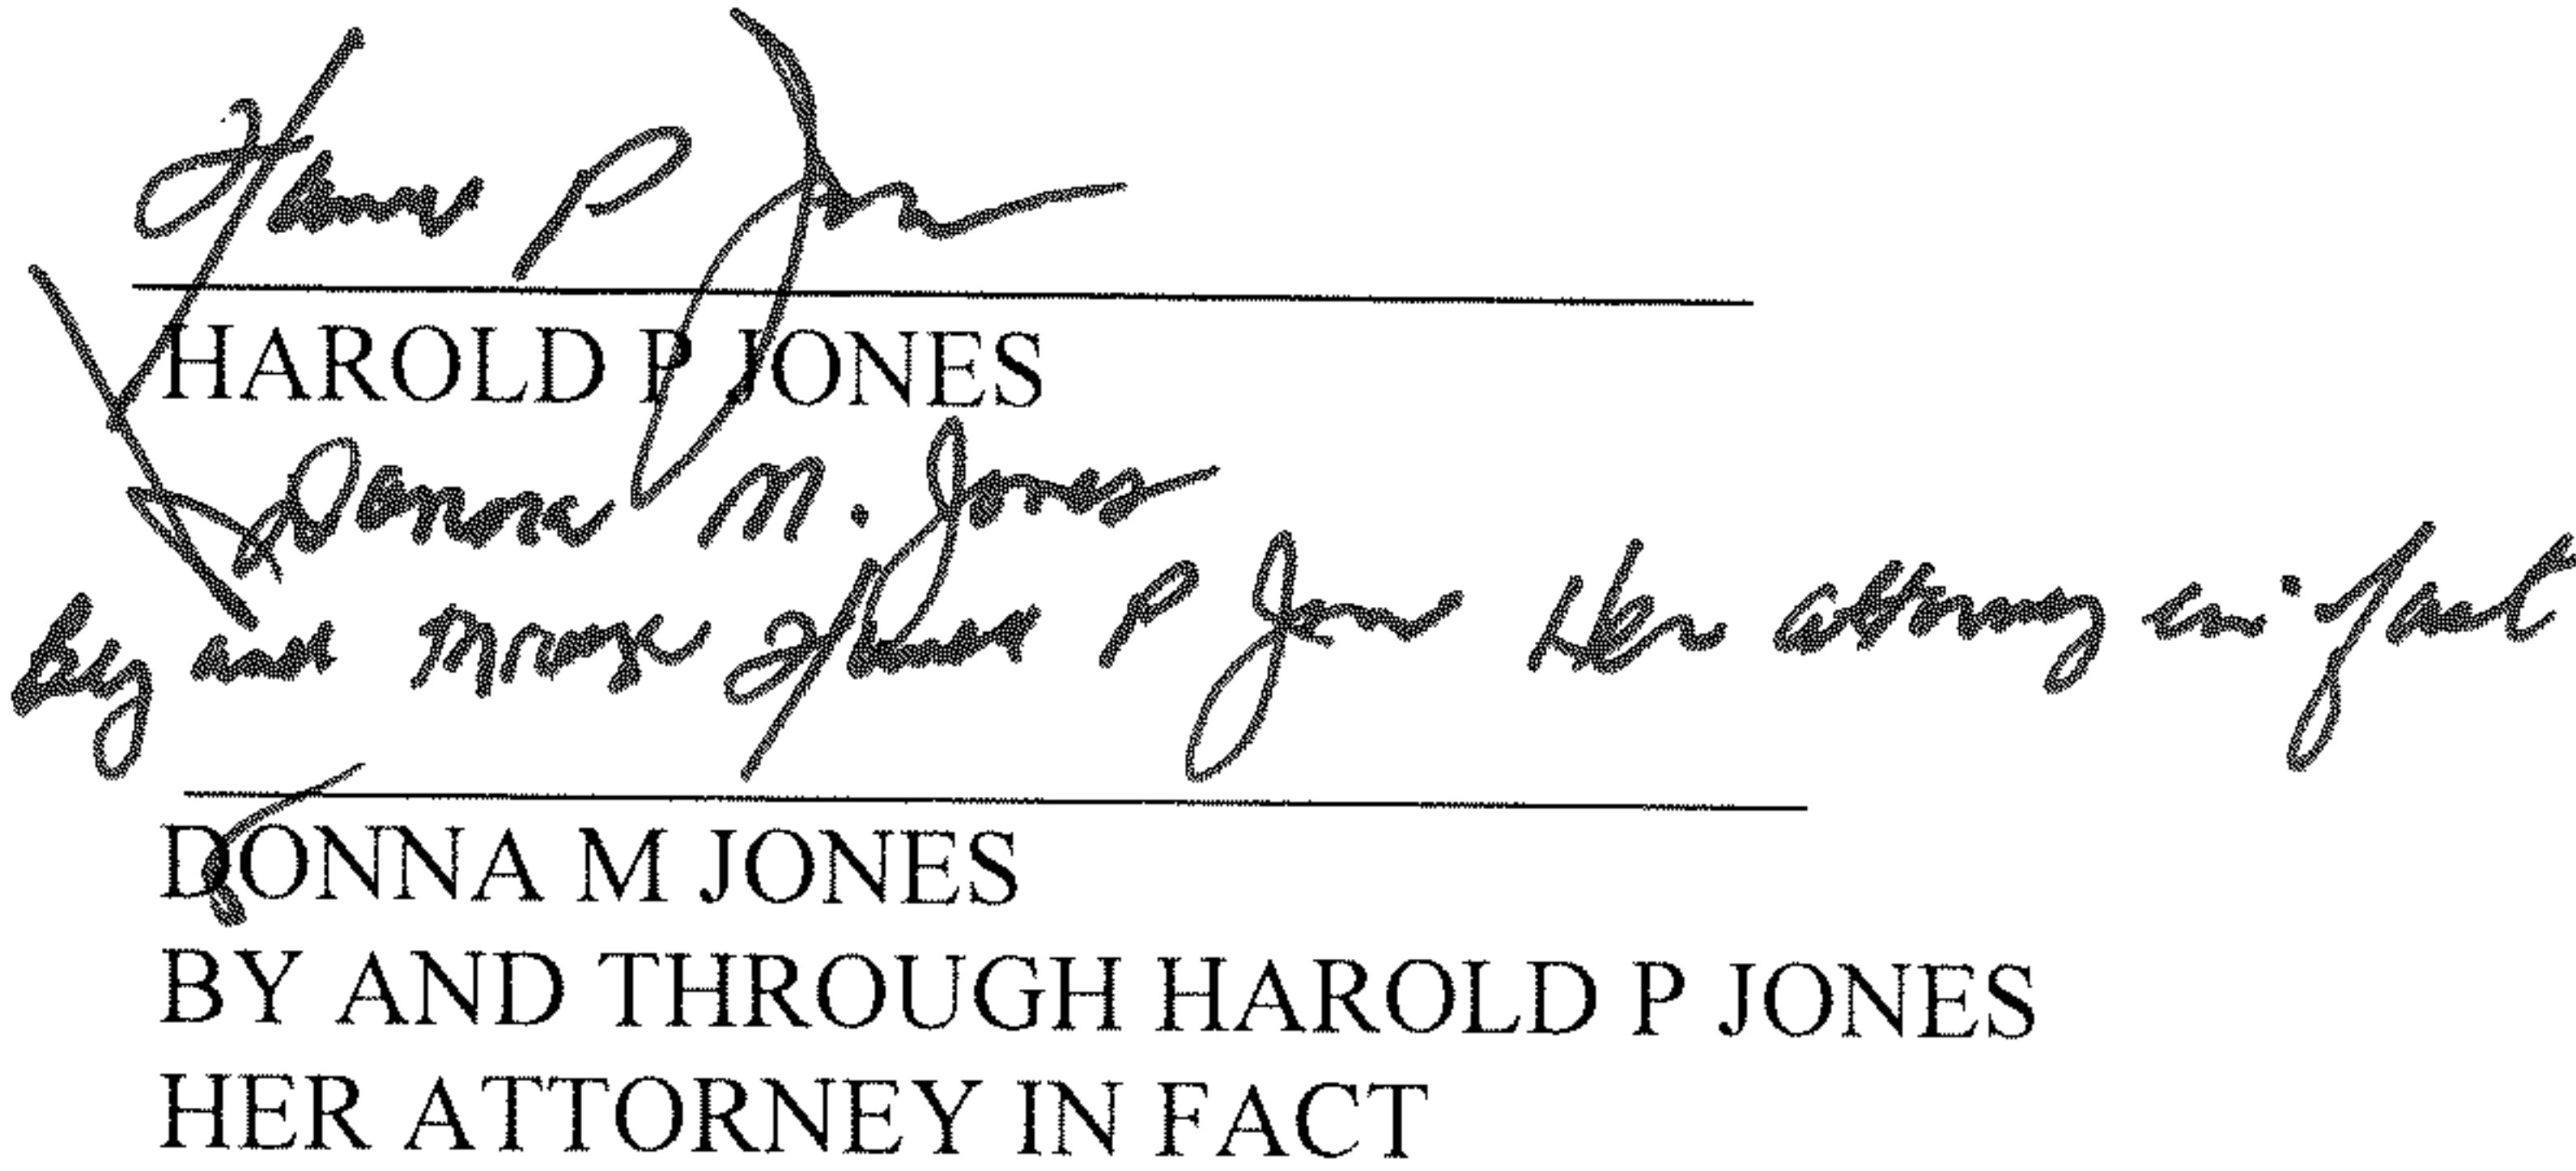 Harold P Jones
HAROLD P JONES
Donna M. Jones
by and through Harold P Jones Her attorney in fact
DONNA M JONES
BY AND THROUGH HAROLD P JONES
HER ATTORNEY IN FACT